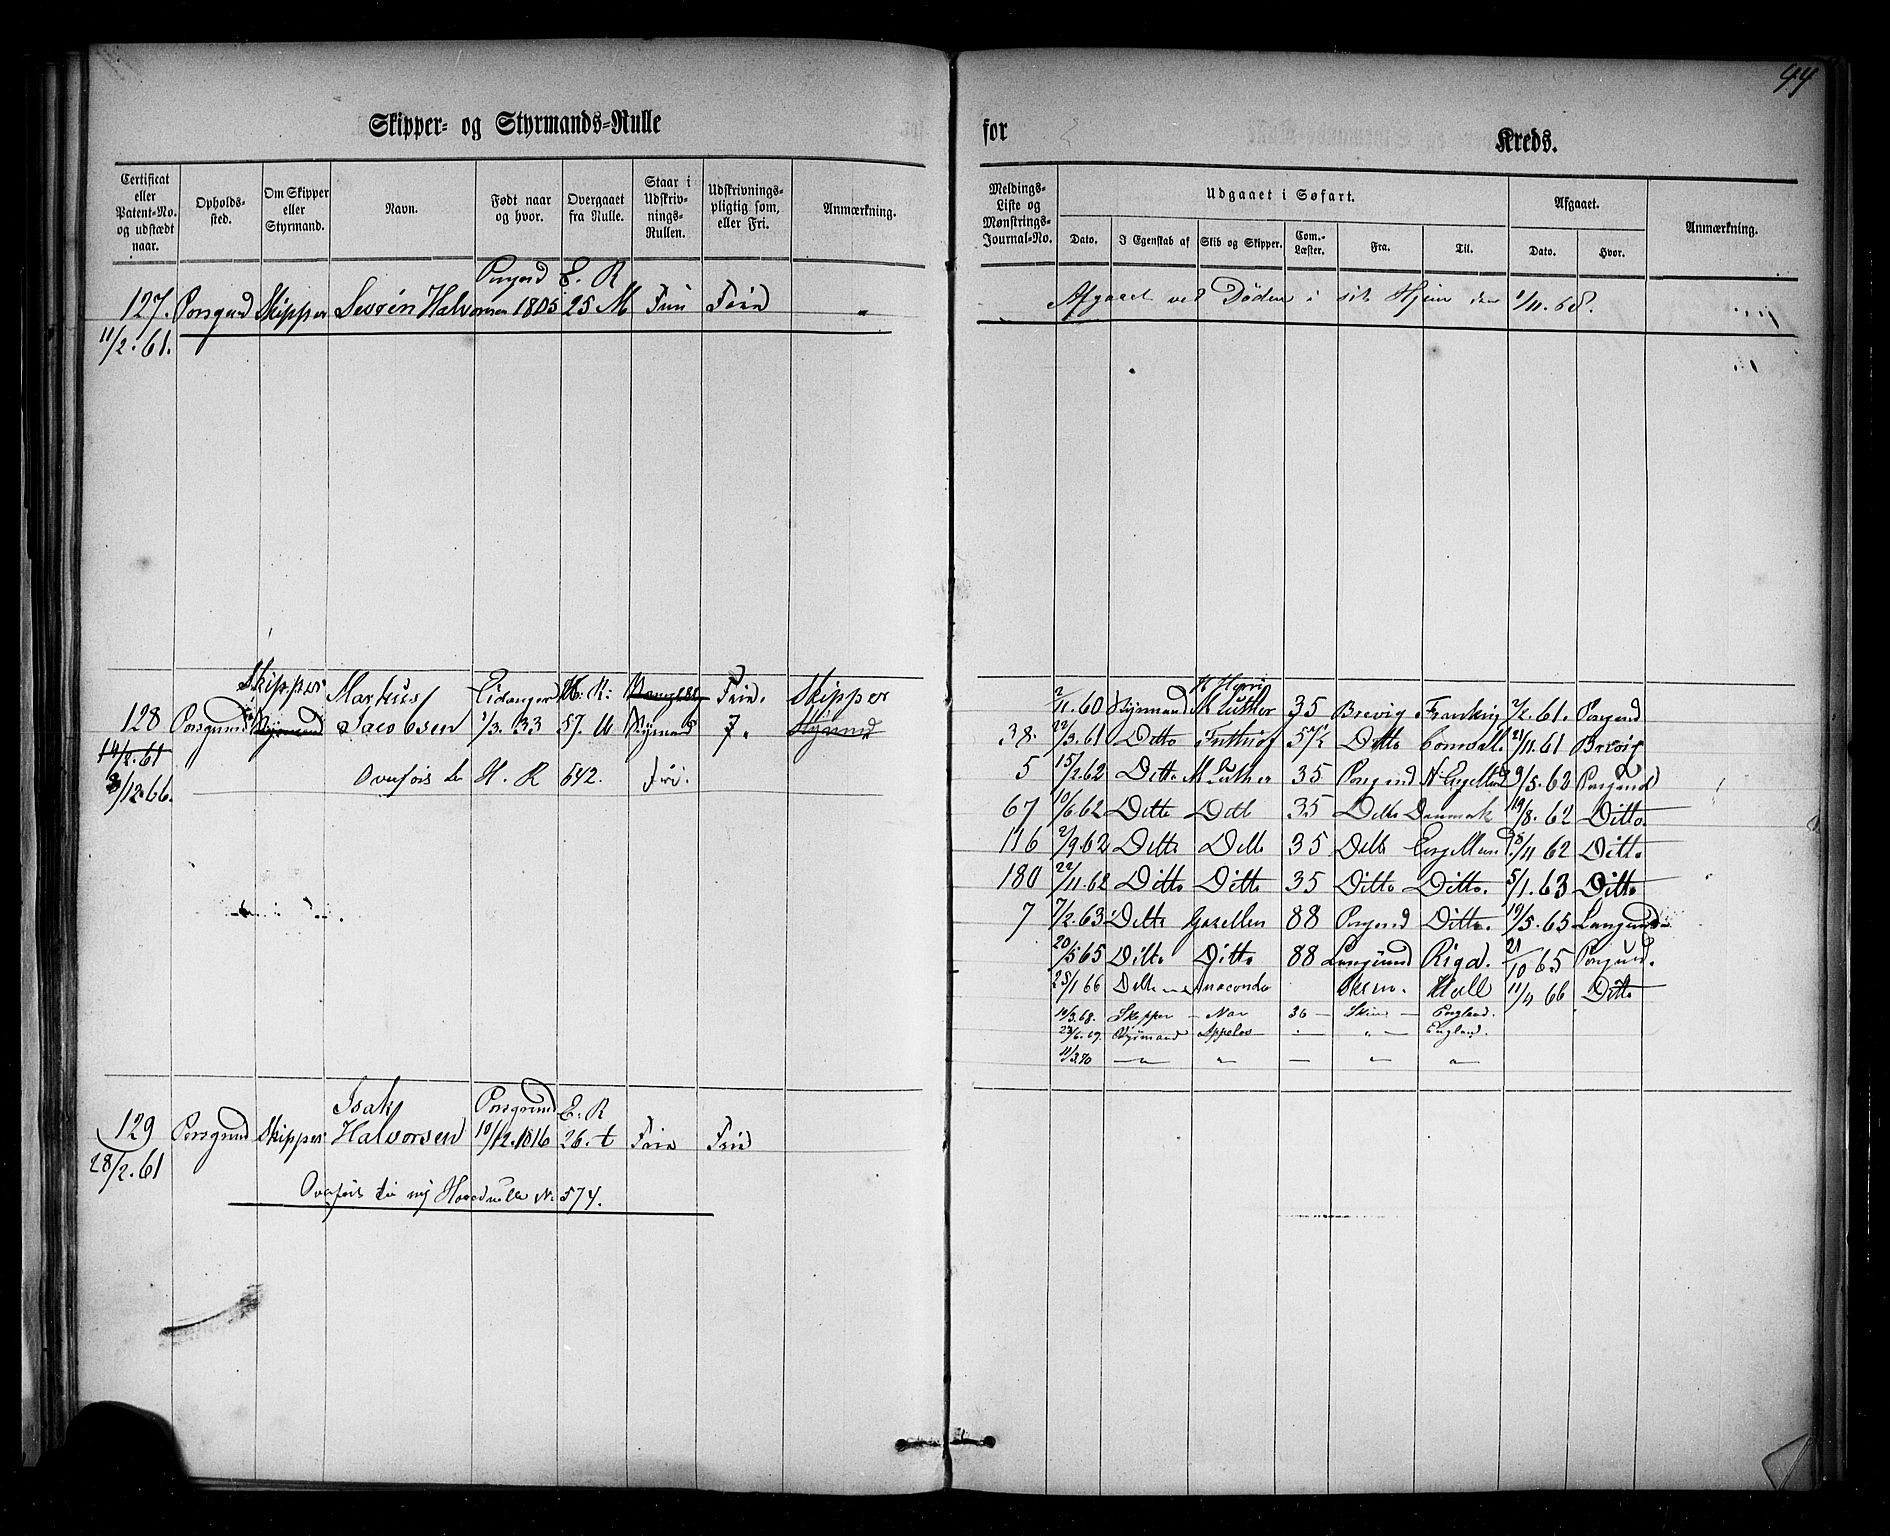 44
Skipper- og Styrmands-Rulle
for
Kreds.
Certificat eller Patent-No. og udstædt naar.
Opholds-sted.
Om Skipper eller Styrmand.
Navn.
Født naar og hvor.
Overgaaet fra Rulle.
Staar i Udskriv-nings-Rullen.
Udskrivnings-pligtig som, eller Fri.
Anmærkning.
Meldings-Liste og Mønstrings-Journal-No.
Udgaaet i Søfart.
Dato.
I Egenskab af
Skib og Skipper.
Com.-Læster.
Fra.
Til.
Afgaaet.
Dato.
Hvor.
Anmærkning.
Porsgrd E. R
127. Porsgrund Skipper Sevrin Halvorsen 1805 25 M Frii Friid "
11/2. 61.
Afgaaet ved Døden i sit Hjem den 1/11. 68.
Skipper Markus Eidanger H. R: Friid. Skipper
128 Porsgrund Styrmand Jacobsen 1/3. 33 57. U Styrmand 7. Styrmd
14/2. 61
3/12. 66.
Overført til H. R 542. Fri.
2/11. 60 Styrmand M Luther 35 Brevig Frankrig 2/2. 61. Porsgrd
38. 22/3. 61 Ditto Frithiof 5 1/2 Ditto Cornvall 21/11. 61 Brevig
5 15/2. 62 Ditto M Luther 35 Porsgrund N. Engelland 9/5. 62 Porsgrund
67 10/6 62 Ditto Ditto 35 Ditto Danmark 19/8. 62 Ditto.
116 2/9. 62 Ditto Ditto 35 Ditto Engelland 5/11 62 Ditto
180 22/11. 62 Ditto Ditto 35 Ditto Ditto. 5/1. 63 Ditto
7 7/2. 63 Ditto Gazellen 88 Porsgrund Ditto. 19/5. 65 Langesund
20/5 65 Ditto Ditto 88 Langesund Riga. 21/10 65 Porsgrund.
25/1 66 Ditto Anaconda Hull 11/4 66 Ditto
10/3. 68. Skipper — Nor 36 — Skien — England.
23/6. 69. Styrmand Appelos — " England.
11/3. 70 — " — " — " "
Isak Porsgrund E. R
129 Porsgrund Skipper Halvorsen 10/12. 1816 26. t Friie Friie
28/2. 61
Overført til ny Hovedrulle No 574.